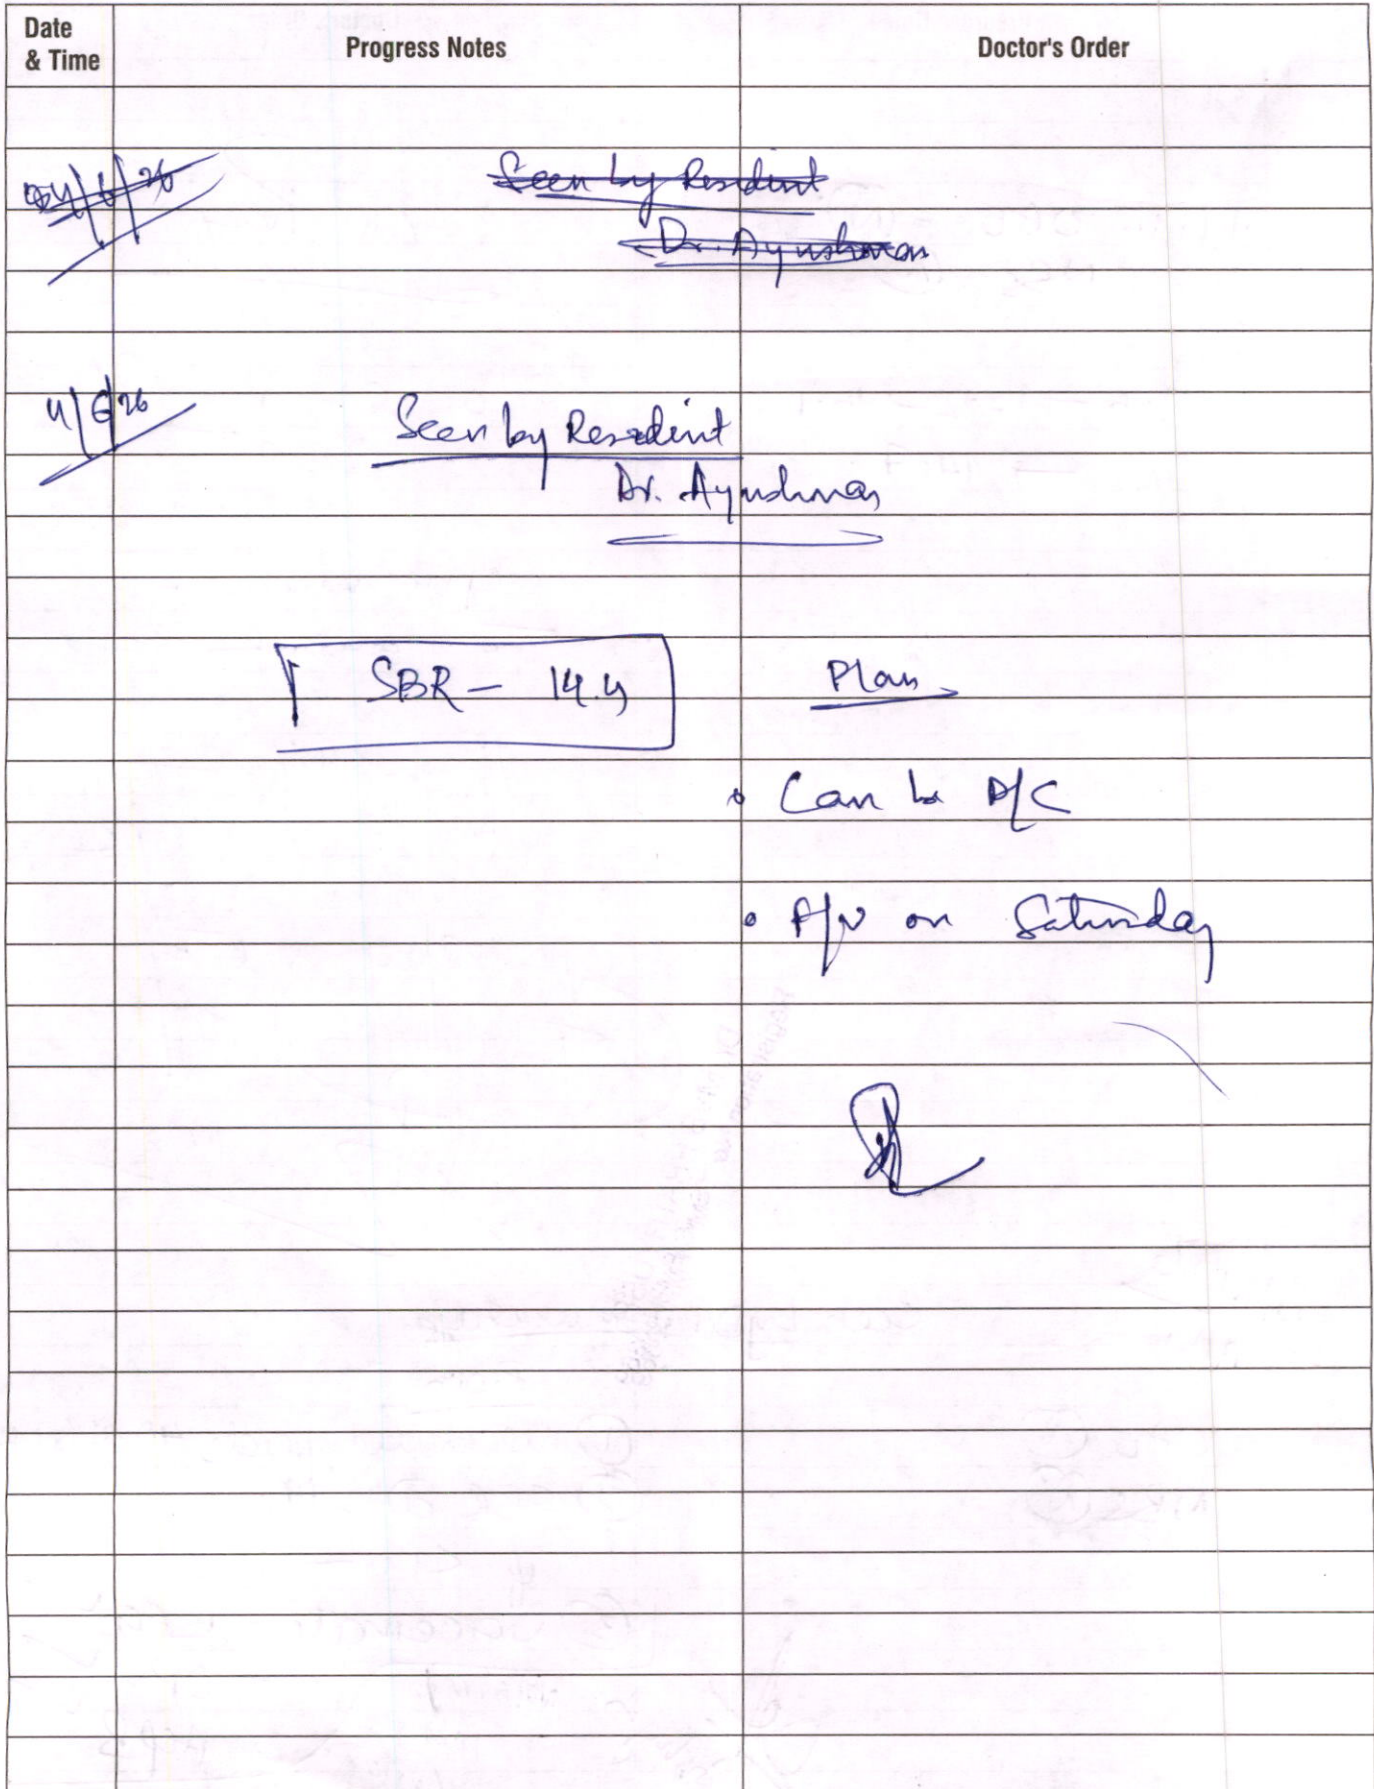 Date & Time Progress Notes Doctor's Order
4/6/26 Seen by Resident
Dr. Ayushman
4/6/26 Seen by Resident
Dr. Ayushman
SBR - 14.4 Plan
• Can be D/C
• F/U on Saturday